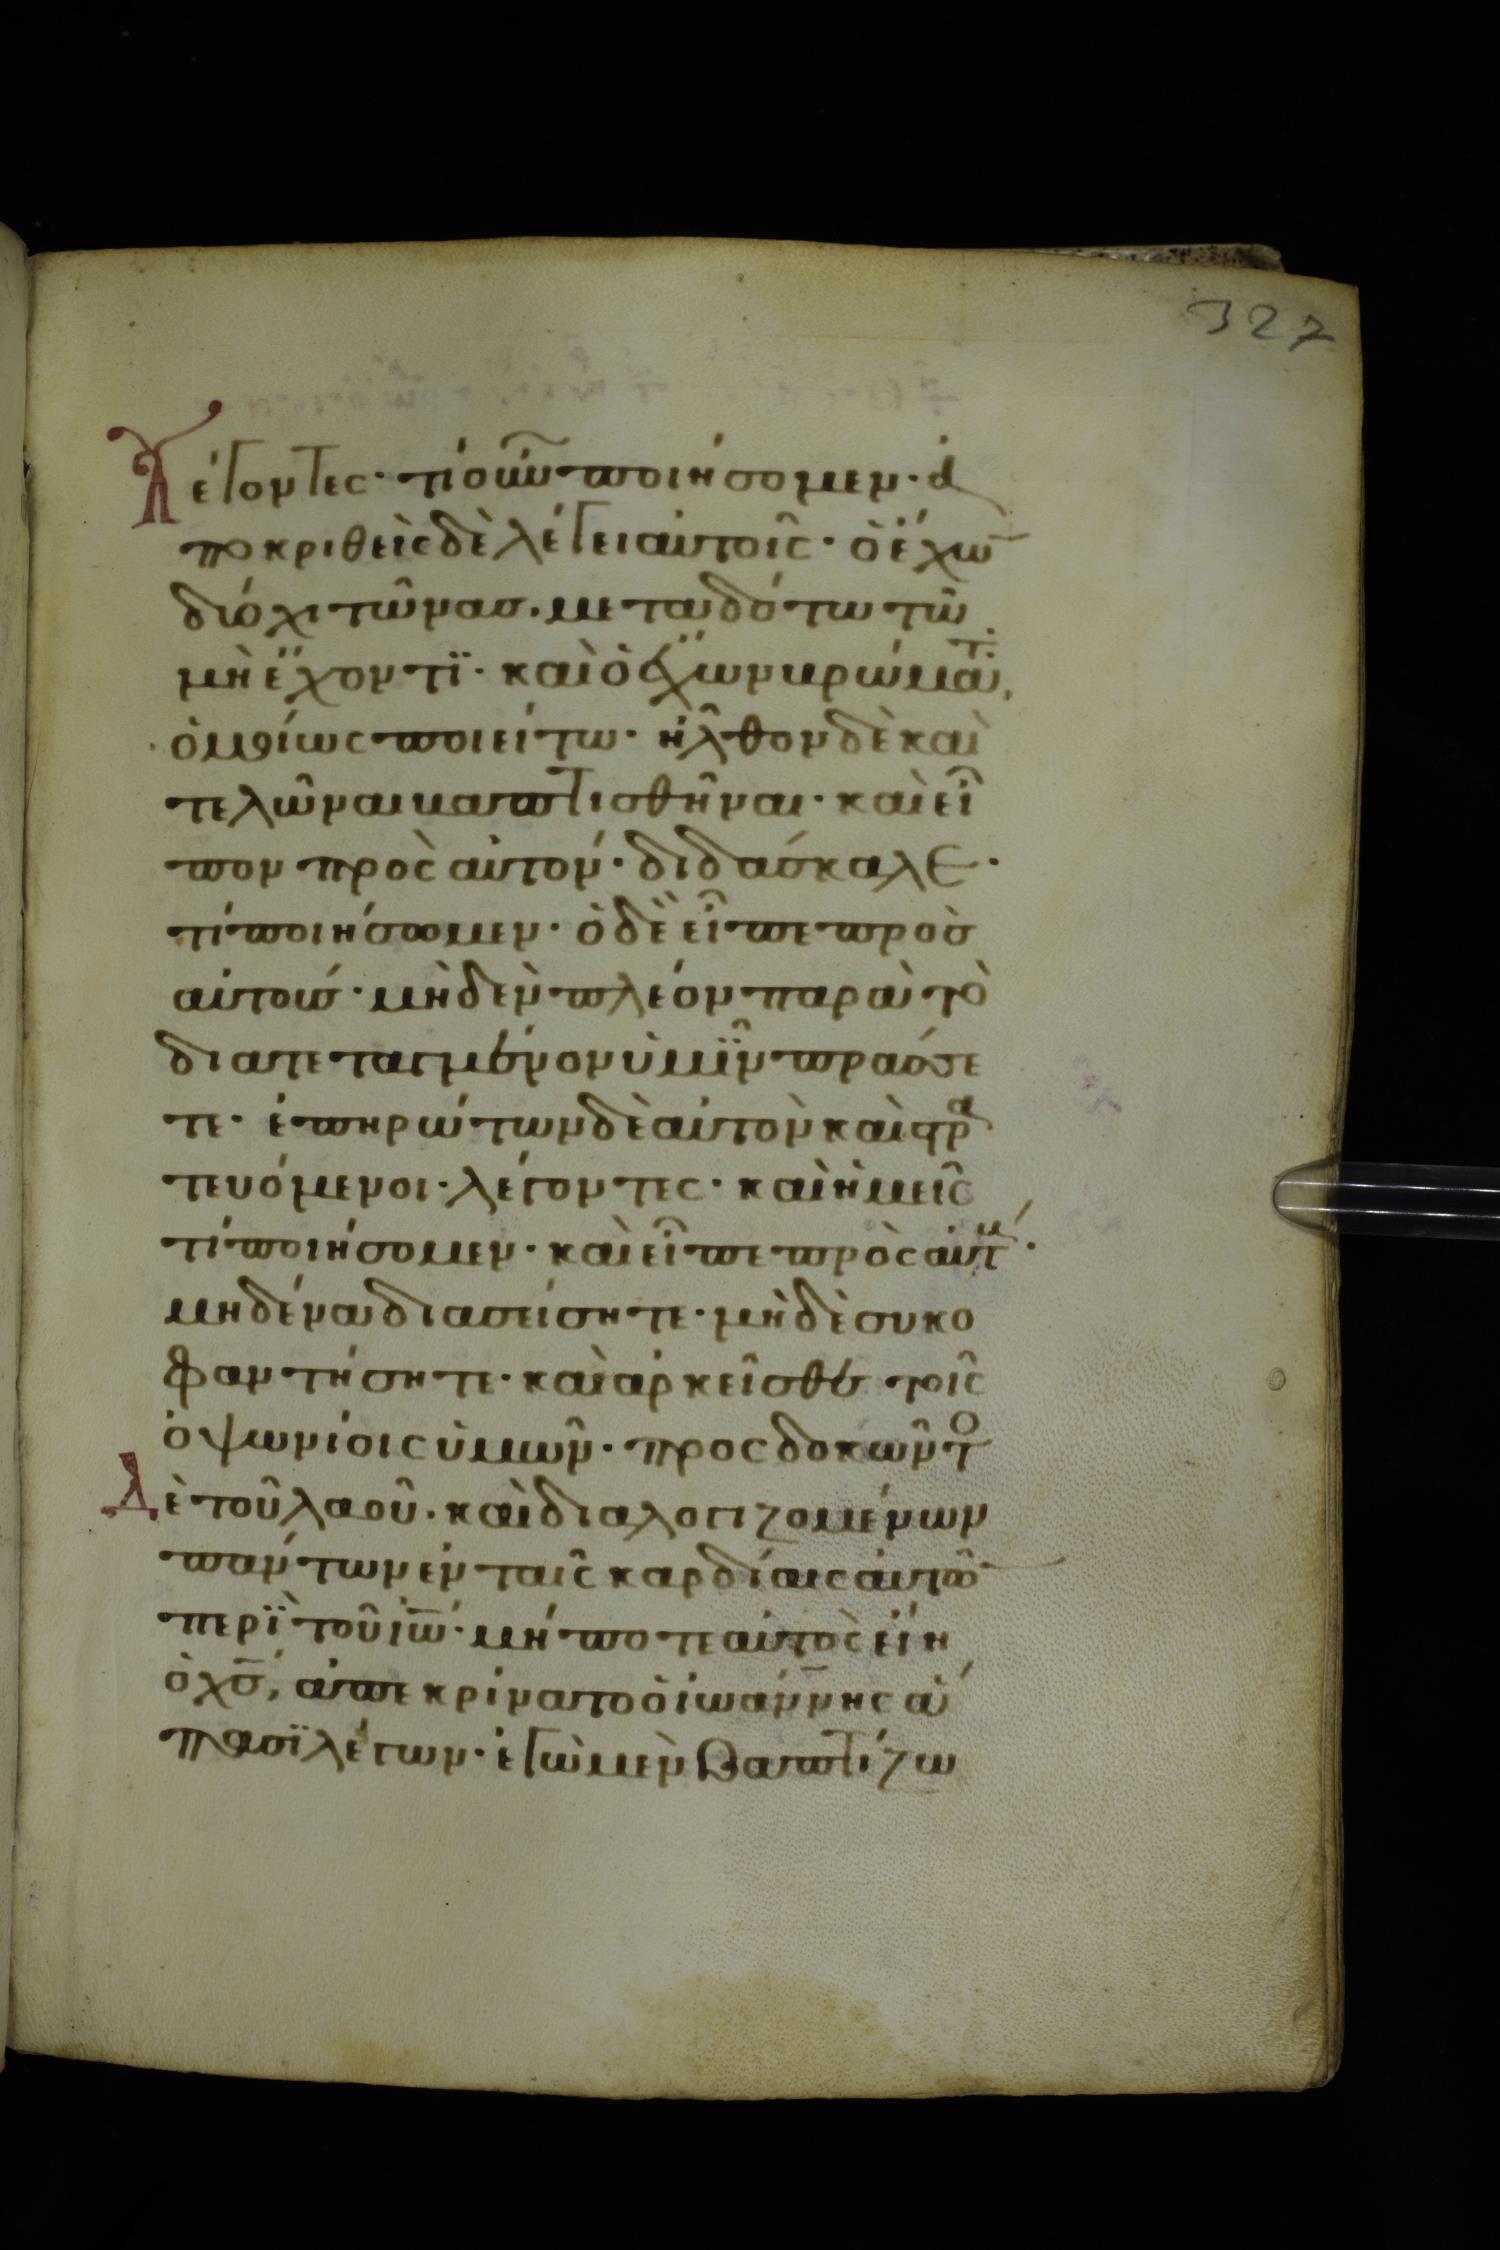 327
λέγοντες· τί οὖν ποιήσομεν· ἀ
ποκριθεὶς δὲ λέγει αὐτοῖς· ὁ ἔχω̅
δύο χιτῶνας. μεταδότω τῶ
μὴ ἔχοντϊ· καὶ ὁ ἔχων βρώματ·
ὁμοίως ποιείτω· ἦλθον δὲ καὶ
τελῶναι βαπτισθῆναι· καὶ εἶ
πον πρὸς αὐτόν· διδάσκαλε·
τί ποιήσωμεν· ὁ δὲ εἶπε πρὸς
αὐτούς· μὴδὲν πλέον παρὰ τὸ
διατεταγμένον ὑμῖν πράσσε
τε· ἐπηρώτων δὲ αὐτὸν καὶ στρα
τευόμενοι· λέγοντες· καὶ ἡμεῖς
τί ποιήσομεν· καὶ εἶπε πρὸς αὐτ·
μηδένα διασείσητε· μὴδὲ συκο
φαντήσητε· καὶ ἀρκεῖσθε τοῖς
ὀψωνίοις ὑμῶν· προσδοκῶντο
δὲ τοῦ λαοῦ. καὶ διαλογιζομένων
πάντων ἐν ταῖς καρδίαις αὐτῶ
περὶ τοῦ ἰω̅· μήποτε αὐτὸς εἴη
ὁ χ̅ς̅, ἀπεκρίνατο ὁ ἰωάννης ἅ
πασϊ λέγων· ἐγὼ μὲν βαπτίζω